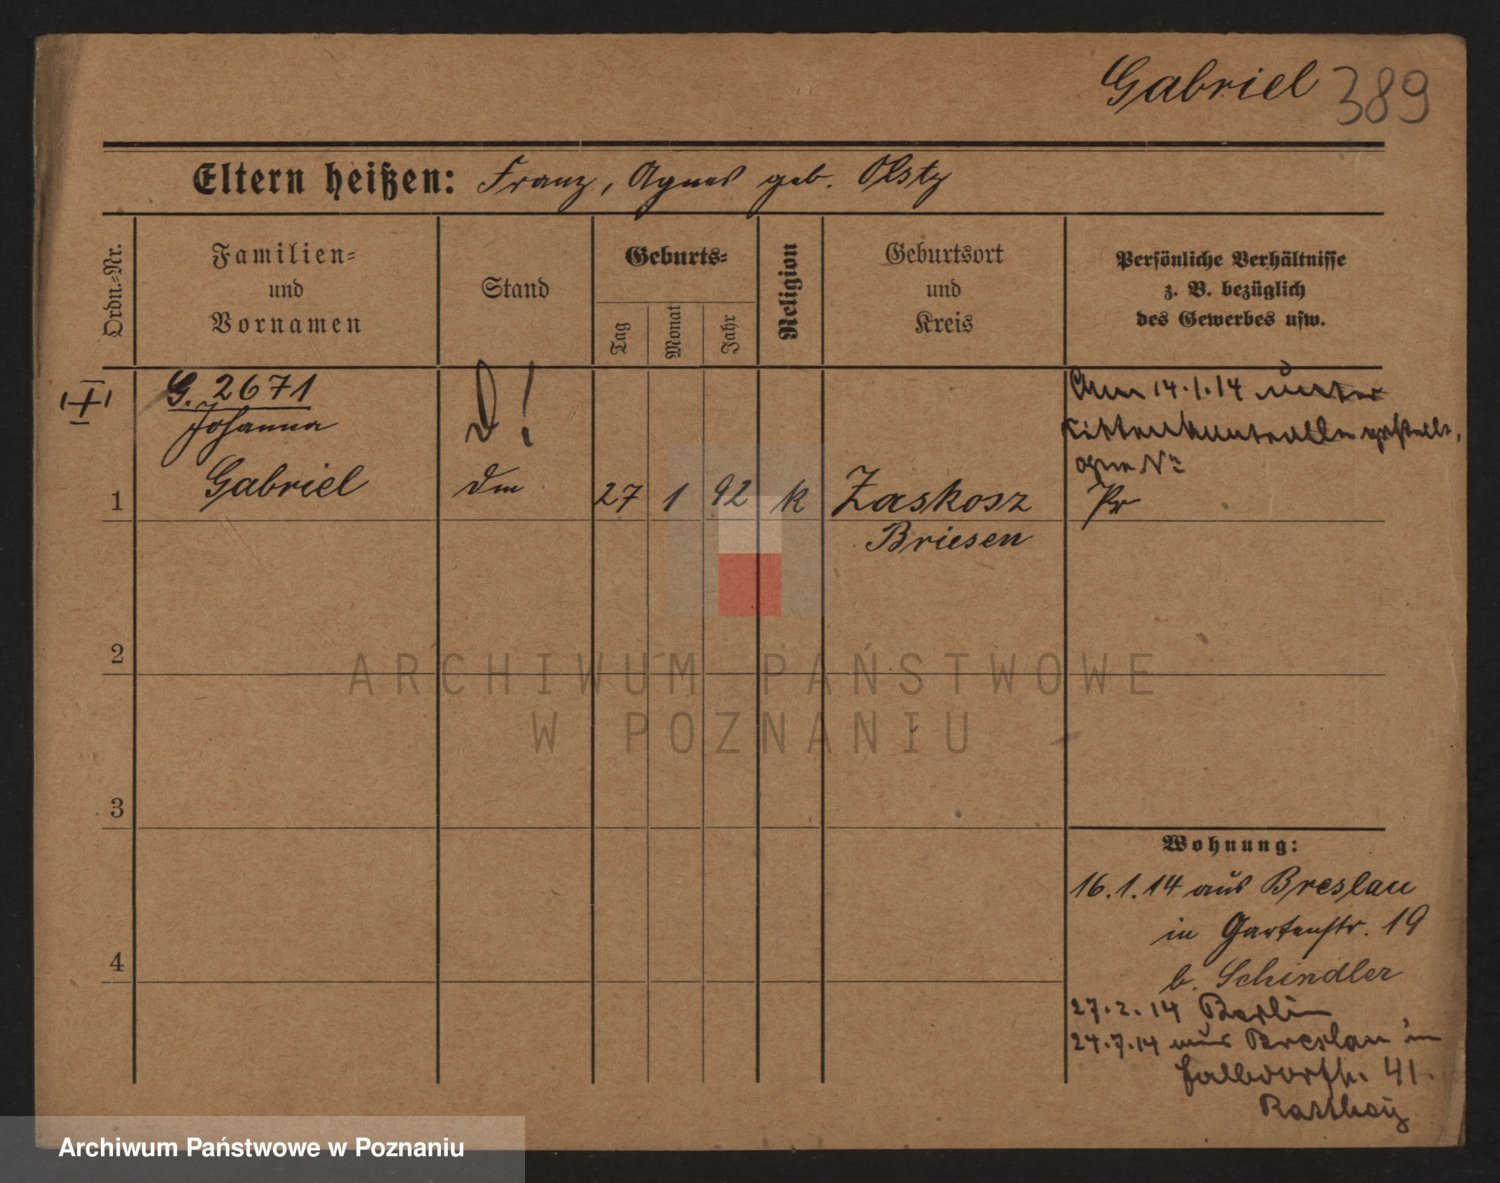 Gabriel 389
Eltern heißen: Franz, Agnes geb. Olsty
Ordn.=Nr.
Familien=
und
Vornamen
Stand
Geburts=
Tag
Monat
Jahr
Religion
Geburtsort
und
Kreis
Persönliche Verhältnisse
z. B. bezüglich
des Gewerbes usw.
G. 2671
Johanna
Gabriel
D!
1
27 1 92 k
Zaskosz
Briesen
Am 14.1.14 unter
Sittenkontrolle gestellt,
Pr
2
3
4
Wohnung:
16.1.14 aus Breslau
in Gartenstr. 19
b. Schindler
27.2.14 Berlin
24.7.14 aus Breslau in
41.
ARCHIWUM PAŃSTWOWE
W POZNANIU
Archiwum Państwowe w Poznaniu